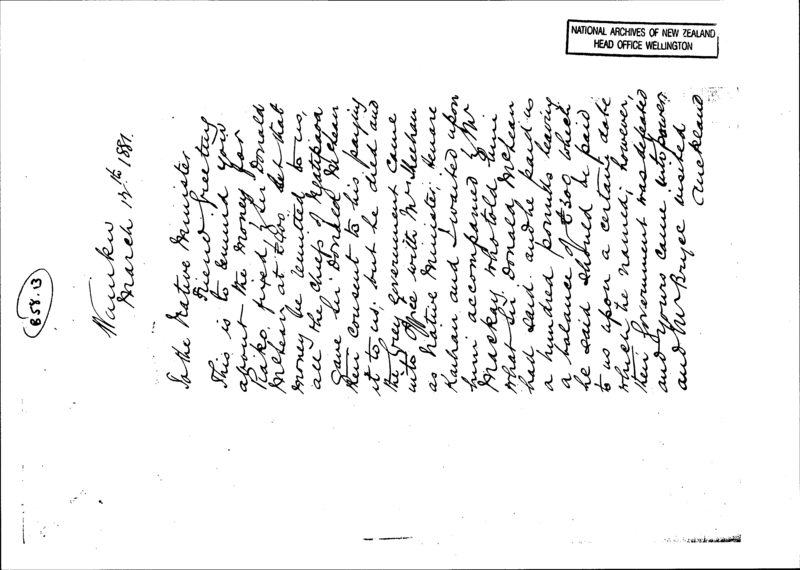 NATIONAL ARCHIVES OF NEW ZEALAND
HEAD OFFICE WELLINGTON
B58.13
Waiuku
March 12th 1881.
To the Native Minister
Friend greeting
This is to remind you
about the money for
Piako fixed by Sir Donald
McLean at £400. Let that
money be remitted to us,
all the chiefs of Ngatipaoa
gave Sir Donald McLean
their consent to his paying
it to us, but he died and
the Grey government came
into Office with Mr Sheehan
as Native Minister,
and I waited upon
him accompanied by Mr
Mackay who told him
what Sir Donald McLean
had said and he paid us
a hundred pounds leaving
a balance of £300 which
he said should be paid
to us upon a certain date
which he named; however,
their Government was defeated
and yours came into power
and Mr Bryce visited
Auckland